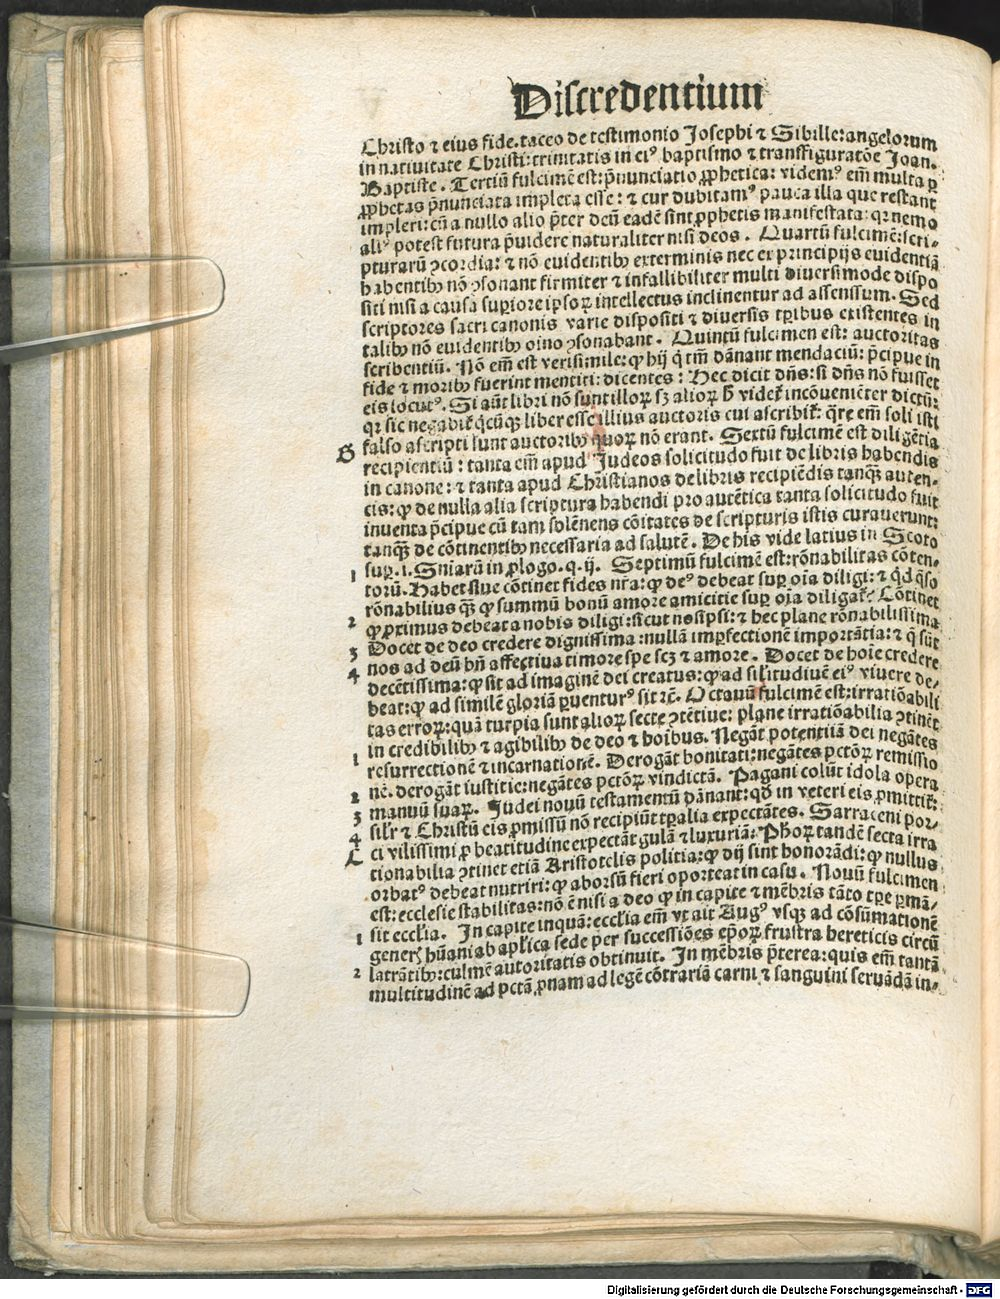 Discredentium
Christo ⁊ eius fide. taceo de testimonio Josephi ⁊ Sibille: angelorum
in natiuitate Christi: trinitatis in ei⁹ baptismo ⁊ transfiguratōe Joan.
Baptiste. Tertiū fulcimē est: p̄nunciatio ꝓphetica: videm⁹ em̄ multa ꝑ
ꝓphetas p̄nunciata impleta esse: ⁊ cur dubitam⁹ pauca illa que restant
impleri: cū a nullo alio p̄ter deū eadē sint ꝓphetis manifestata: qꝛ nemo
ali⁹ potest futura p̄uidere naturaliter nisi deos. Quartū fulcimē: scri-
pturarū ꝯcordia: ⁊ nō euidentibꝫ ex terminis nec ex principijs euidentiā
habentibꝫ nō ꝯsonant firmiter ⁊ infallibiliter multi diuersimode dispo
siti nisi a causa supiore ipsoꝝ intellectus inclinentur ad assensum. Sed
scriptores sacri canonis varie dispositi ⁊ diuersis tꝑibus existentes in
talibꝫ nō euidentibꝫ oīno ꝯsonabant. Quintū fulcimen est: auctoritas
scribentiū. Nō em̄ est verisimile: ꝙ hij q̄ tm̄ dānant mendaciū: p̄cipue in
fide ⁊ moribꝫ fuerint mentiti: dicentes: Hec dicit dn̄s: si dn̄s nō fuisset
eis locut⁹. Si aūt libri nō sunt illoꝝ sꝫ alioꝝ ħ videt̄ incōuenienter dictū:
qꝛ sic negabit̄ q̄cūqꝫ liber esse illius auctoris cui ascribit̄: q̄re em̄ soli isti
falso ascripti sunt auctoribꝫ quoꝝ nō erant. Sextū fulcimē est diligētia
recipientiū: tanta em̄ apud Judeos solicitudo fuit de libris habendis
in canone: ⁊ tanta apud Christianos de libris recipiēdis tanqꝫ auten-
cis: ꝙ de nulla alia scriptura habendi pro autētica tanta solicitudo fuit
inuenta p̄cipue cū tam solēnens cōitates de scripturis istis curauerunt:
tanqꝫ de cōtinentibꝫ necessaria ad salutē. De his vide latius in Scoto
suꝑ. i. Sniarū in ꝓlogo. q. ij. Septimū fulcimē est: rōnabilitas cōten-
torū. Habet siue cōtinet fides nr̄a: ꝙ de⁹ debeat suꝑ oīa diligi: ⁊ q̇d q̄so
rōnabilius qꝫ ꝙ summū bonū amore amicitie suꝑ oīa diligat̄? Cōtinet
ꝙ ꝓximus debeat a nobis diligi: sicut nosipsi: ⁊ hec plane rōnabilissima
Docet de deo credere dignissima: nullā imꝑfectionē importātia: ⁊ q̄ sūt
nos ad deū bn̄ affectiua timore spe scꝫ ⁊ amore. Docet de hoīe credere
decētissima: ꝙ sit ad imaginē dei creatus: ꝙ ad sil̄itudinē ei⁹ viuere de-
beat: ꝙ ad similē gloriā ꝑuentur⁹ sit ⁊c̄. Octauū fulcimē est: irratiōabili
tas erroꝝ: quā turpia sunt alioꝝ secte ꝯtētiue: plane irratiōabilia ꝯtinēt
in credibilibꝫ ⁊ agibilibꝫ de deo ⁊ hoībus. Negāt potentiā dei negātes
resurrectionē ⁊ incarnationē. Derogāt bonitati: negātes pctōꝝ remissio
nē. derogāt iustitie: negātes pctōꝝ vindictā. Pagani colūt idola opera
manuū suaꝝ. Judei nouū testamentū dānant: qd̄ in veteri eis ꝓmittit̄:
sil̄r ⁊ Christū eis ꝓmissū nō recipiūt tꝑalia expectātes. Sarraceni por-
ci vilissimi ꝓ beatitudine expectāt gulā ⁊ luxuriā: Ph̄oꝝ tandē secta irra
tionabilia ꝯtinet etiā Aristotelis politia: ꝙ dij sint honorādi: ꝙ nullus
orbat⁹ debeat nutriri: ꝙ aborsū fieri oporteat in casu. Nouū fulcimen
est: ecclesie stabilitas: nō ē nisi a deo ꝙ in capite ⁊ mēbris tāto tꝑe ꝑmā-
sit eccl̄ia. In capite inquā: eccl̄ia em̄ vt ait Aug⁹ vsqꝫ ad cōsūmationē
generꝭ hūani ab apl̄ica sede per successiōes ep̄oꝝ frustra hereticis circū
latrātibꝫ: culmē autoritatis obtinuit. In mēbris p̄terea: quis em̄ tantā
multitudinē ad pctā ꝓnam ad legē cōtrariā carni ⁊ sanguini seruādā in-
B
1
2
3
4
1
2
3
4
C
1
2
Digitalisierung gefördert durch die Deutsche Forschungsgemeinschaft - DFG